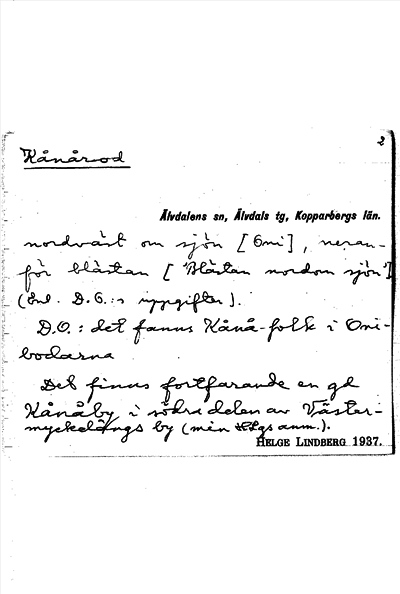 2
Kånårod
Älvdalens sn, Älvdals tg, Kopparbergs län.
nordväst om sjön [Oni], neran-
för blästan ["Blästan nordom sjön"]
(Enl. D.O.:s uppgifter).
D.O.: det fanns Kånå-folk i Oni-
bodarna
Det finns fortfarande en gd
Kånåby i södra delen av Väster-
myckelängs by (min anm.).
HELGE LINDBERG 1937.